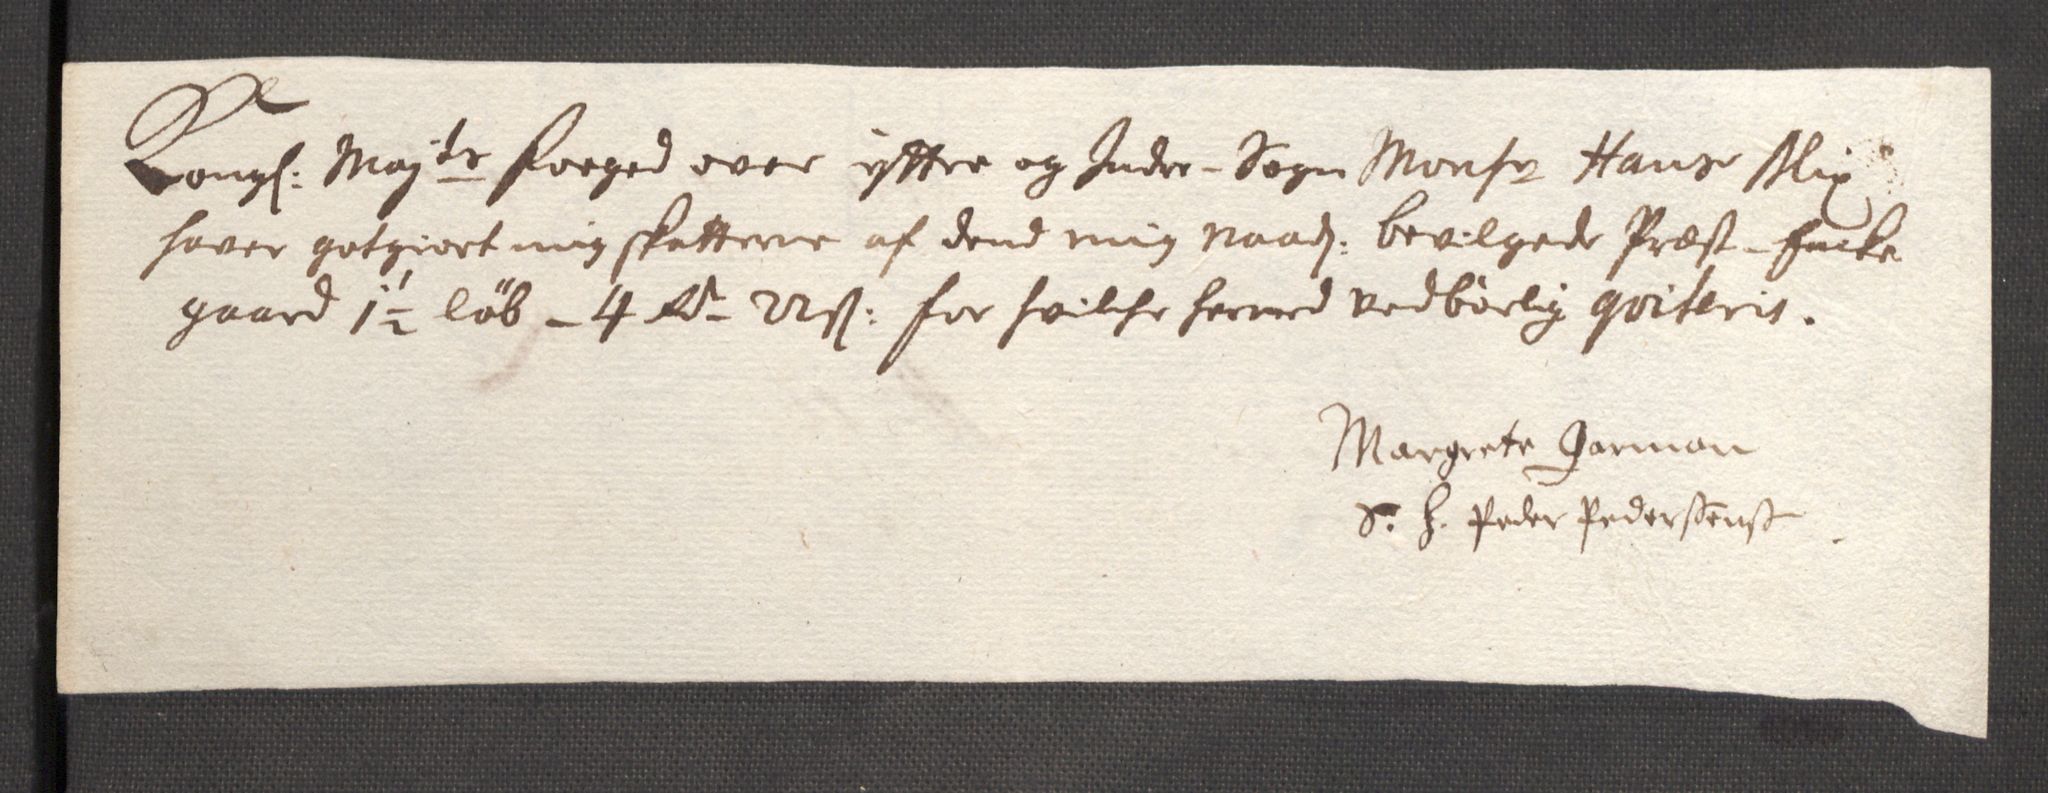 Kongl: Mayts foeged over ytter og Inder-Sogn Monsr Hans Blix
haver gotgiort mig skatterne af dend mig naad: bevilgede Præst-Encke
gaard 1½ løb - 4 rd - 22 ß: for hvilche hermed vedbørlig qviteris.
Margrete Garman
S. H. Peder Pederssenß